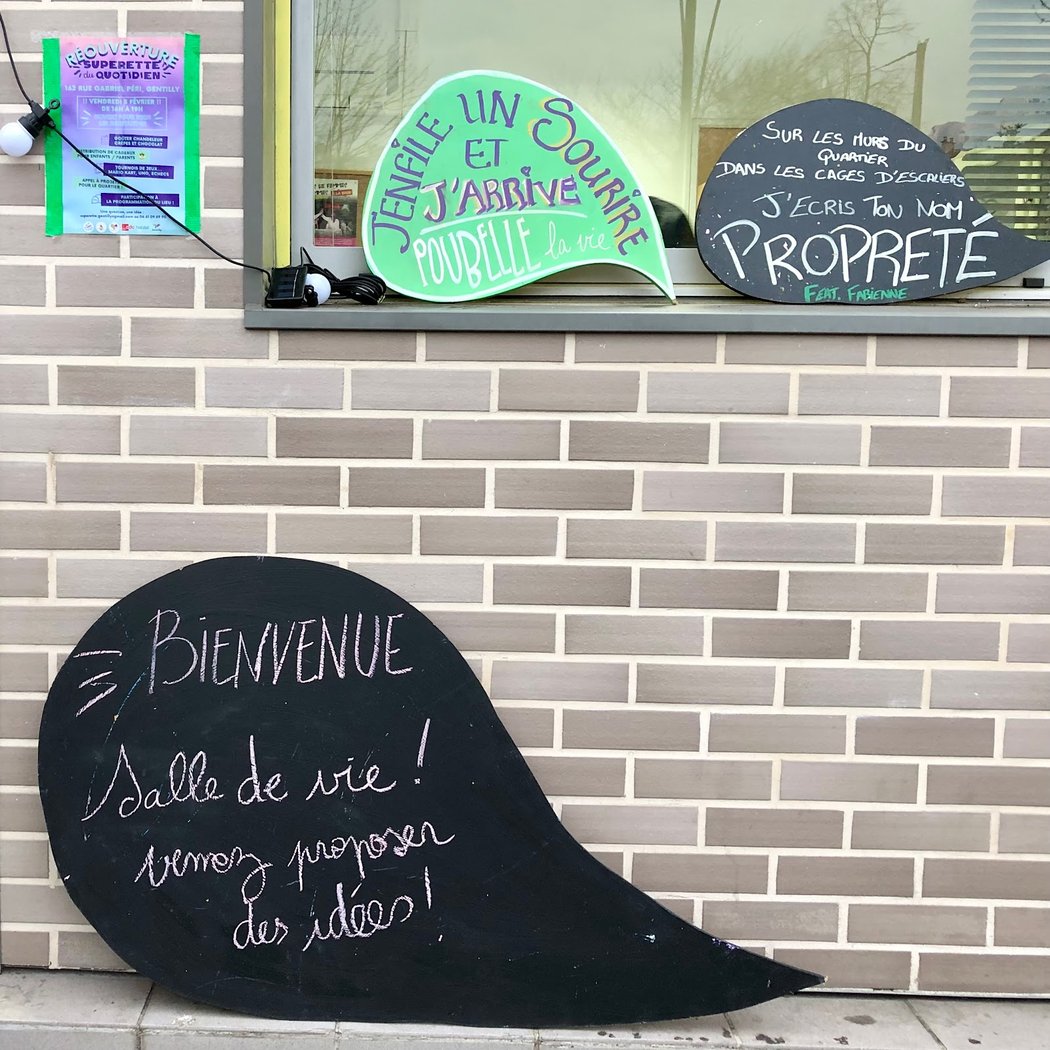 RÉOUVERTURE
SUPERETTE
du QUOTIDIEN
162 RUE GABRIEL PÉRI, GENTILLY
!! VENDREDI 5 FÉVRIER !!
DE 16H À 19H
GOÛTER CHANDELEUR
CRÊPES ET CHOCOLAT
DISTRIBUTION DE CADEAUX
POUR ENFANTS / PARENTS
TOURNOIS DE JEUX
MARIO KART, UNO, ECHECS
POUR LE QUARTIER
PARTICIPATION À
LA PROGRAMMATION DU LIEU !
J'ENFILE UN SOURIRE
ET
J'ARRIVE
POUBELLE la vie
SUR LES MURS DU
QUARTIER
DANS LES CAGES D'ESCALIERS
J'ECRIS TON NOM
PROPRETÉ
FEAT. FABIENNE
BIENVENUE
Salle de vie !
venez proposer
des idées !